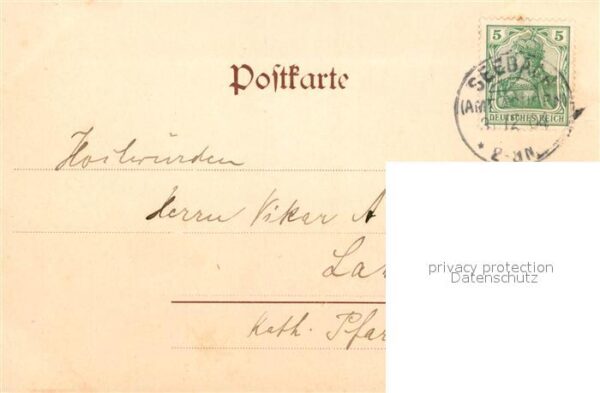 5 5
DEUTSCHES REICH
SEEBACH
(AMT
2-3N.
Postkarte
Hochwürden
Herrn Vikar A
La
Kath. Pfar
privacy protection
Datenschutz